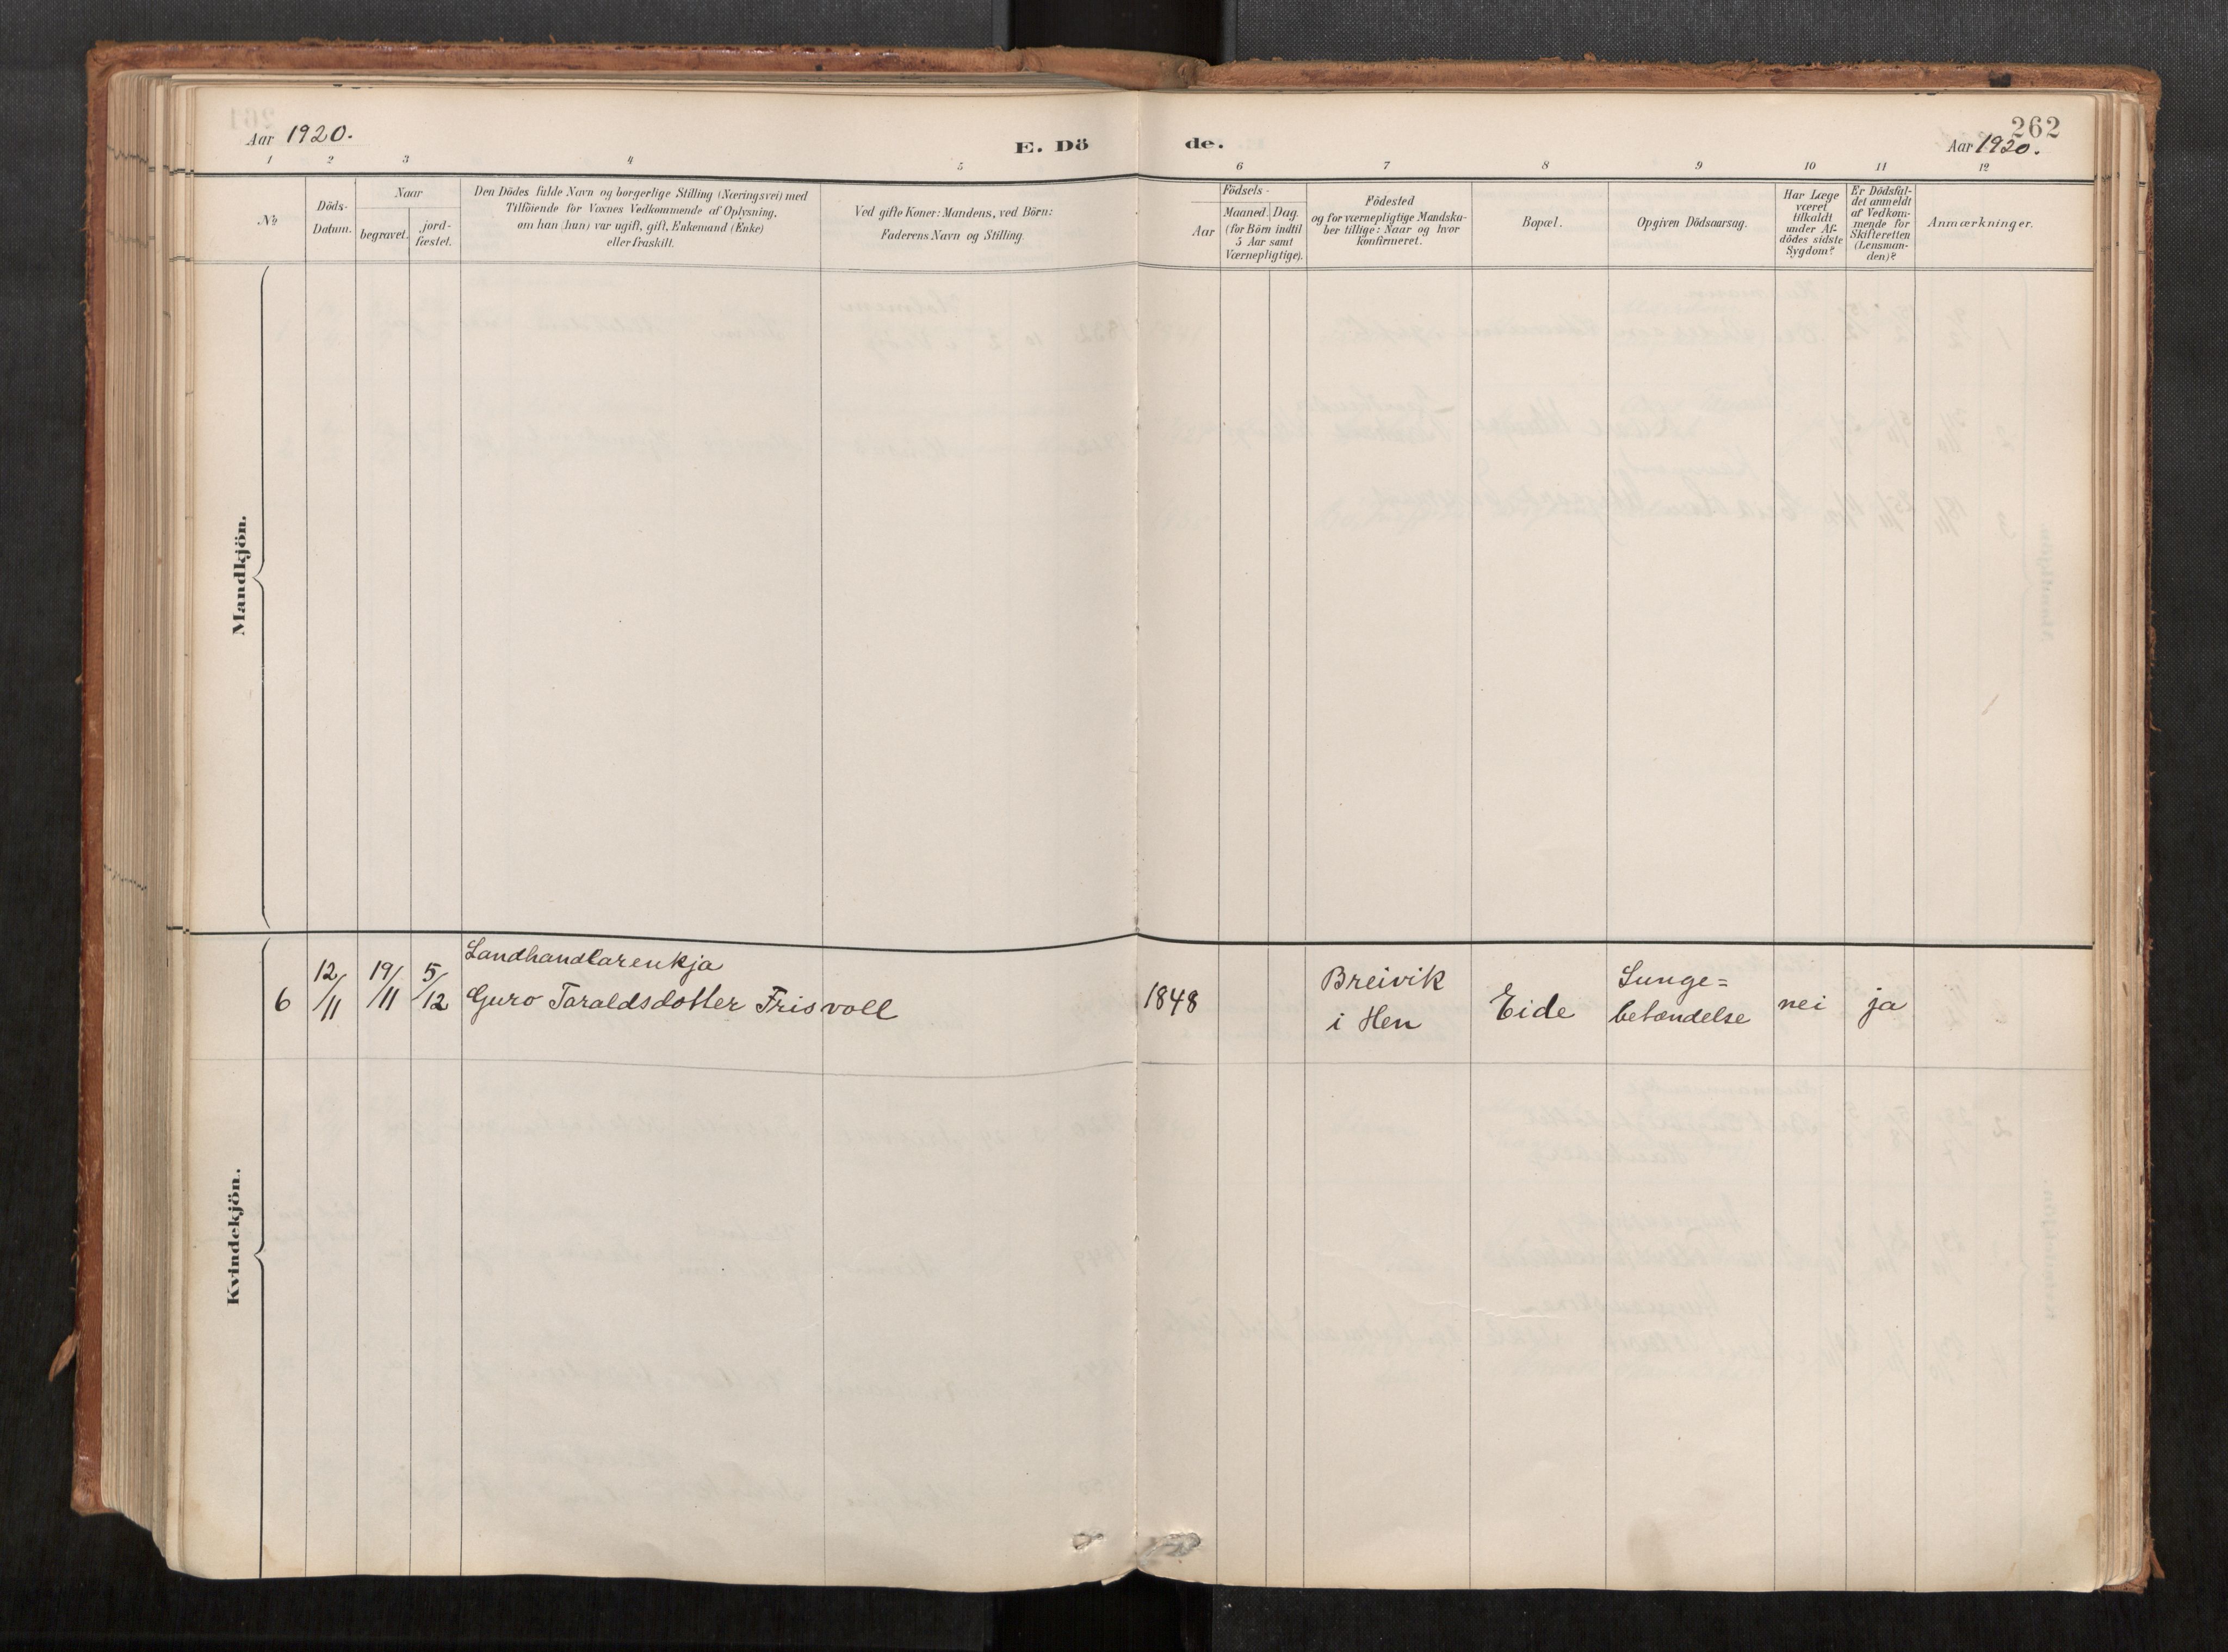 262
Aar 1920.
E. Dö
de.
Aar 1920.
1 2 3 4 5 6 7 8 9 10 11 12
No
Döds-
Datum.
Naar
begravet.
jord-
fæstet.
Den Dödes fulde Navn og borgerlige Stilling (Næringsvei) med
Tilföiende for Voxnes Vedkommende af Oplysning,
om han (hun) var ugift, gift, Enkemand (Enke)
eller fraskilt.
Ved gifte Koner: Mandens, ved Börn:
Faderens Navn og Stilling.
Aar
Födsels-
Maaned. Dag.
(for Börn indtil
5 Aar samt
Værnepligtige).
Födested
og for værnepligtige Mandska-
ber tillige: Naar og hvor
konfirmeret.
Bopæl.
Opgiven Dödsaarsag.
Har Læge
været
tilkaldt
under Af-
dödes sidste
Sygdom?
Er Dödsfal-
det anmeldt
af Vedkom-
mende for
Skifteretten
(Lensman-
den)?
Anmærkninger.
Mandkjön.
Landhandlarenkja
6 12/11 19/11 5/12 Guro Taraldsdotter Frisvoll 1848 Breivik
i Hen
Eide
Lunge=
betændelse
nei ja
Kvindekjön.